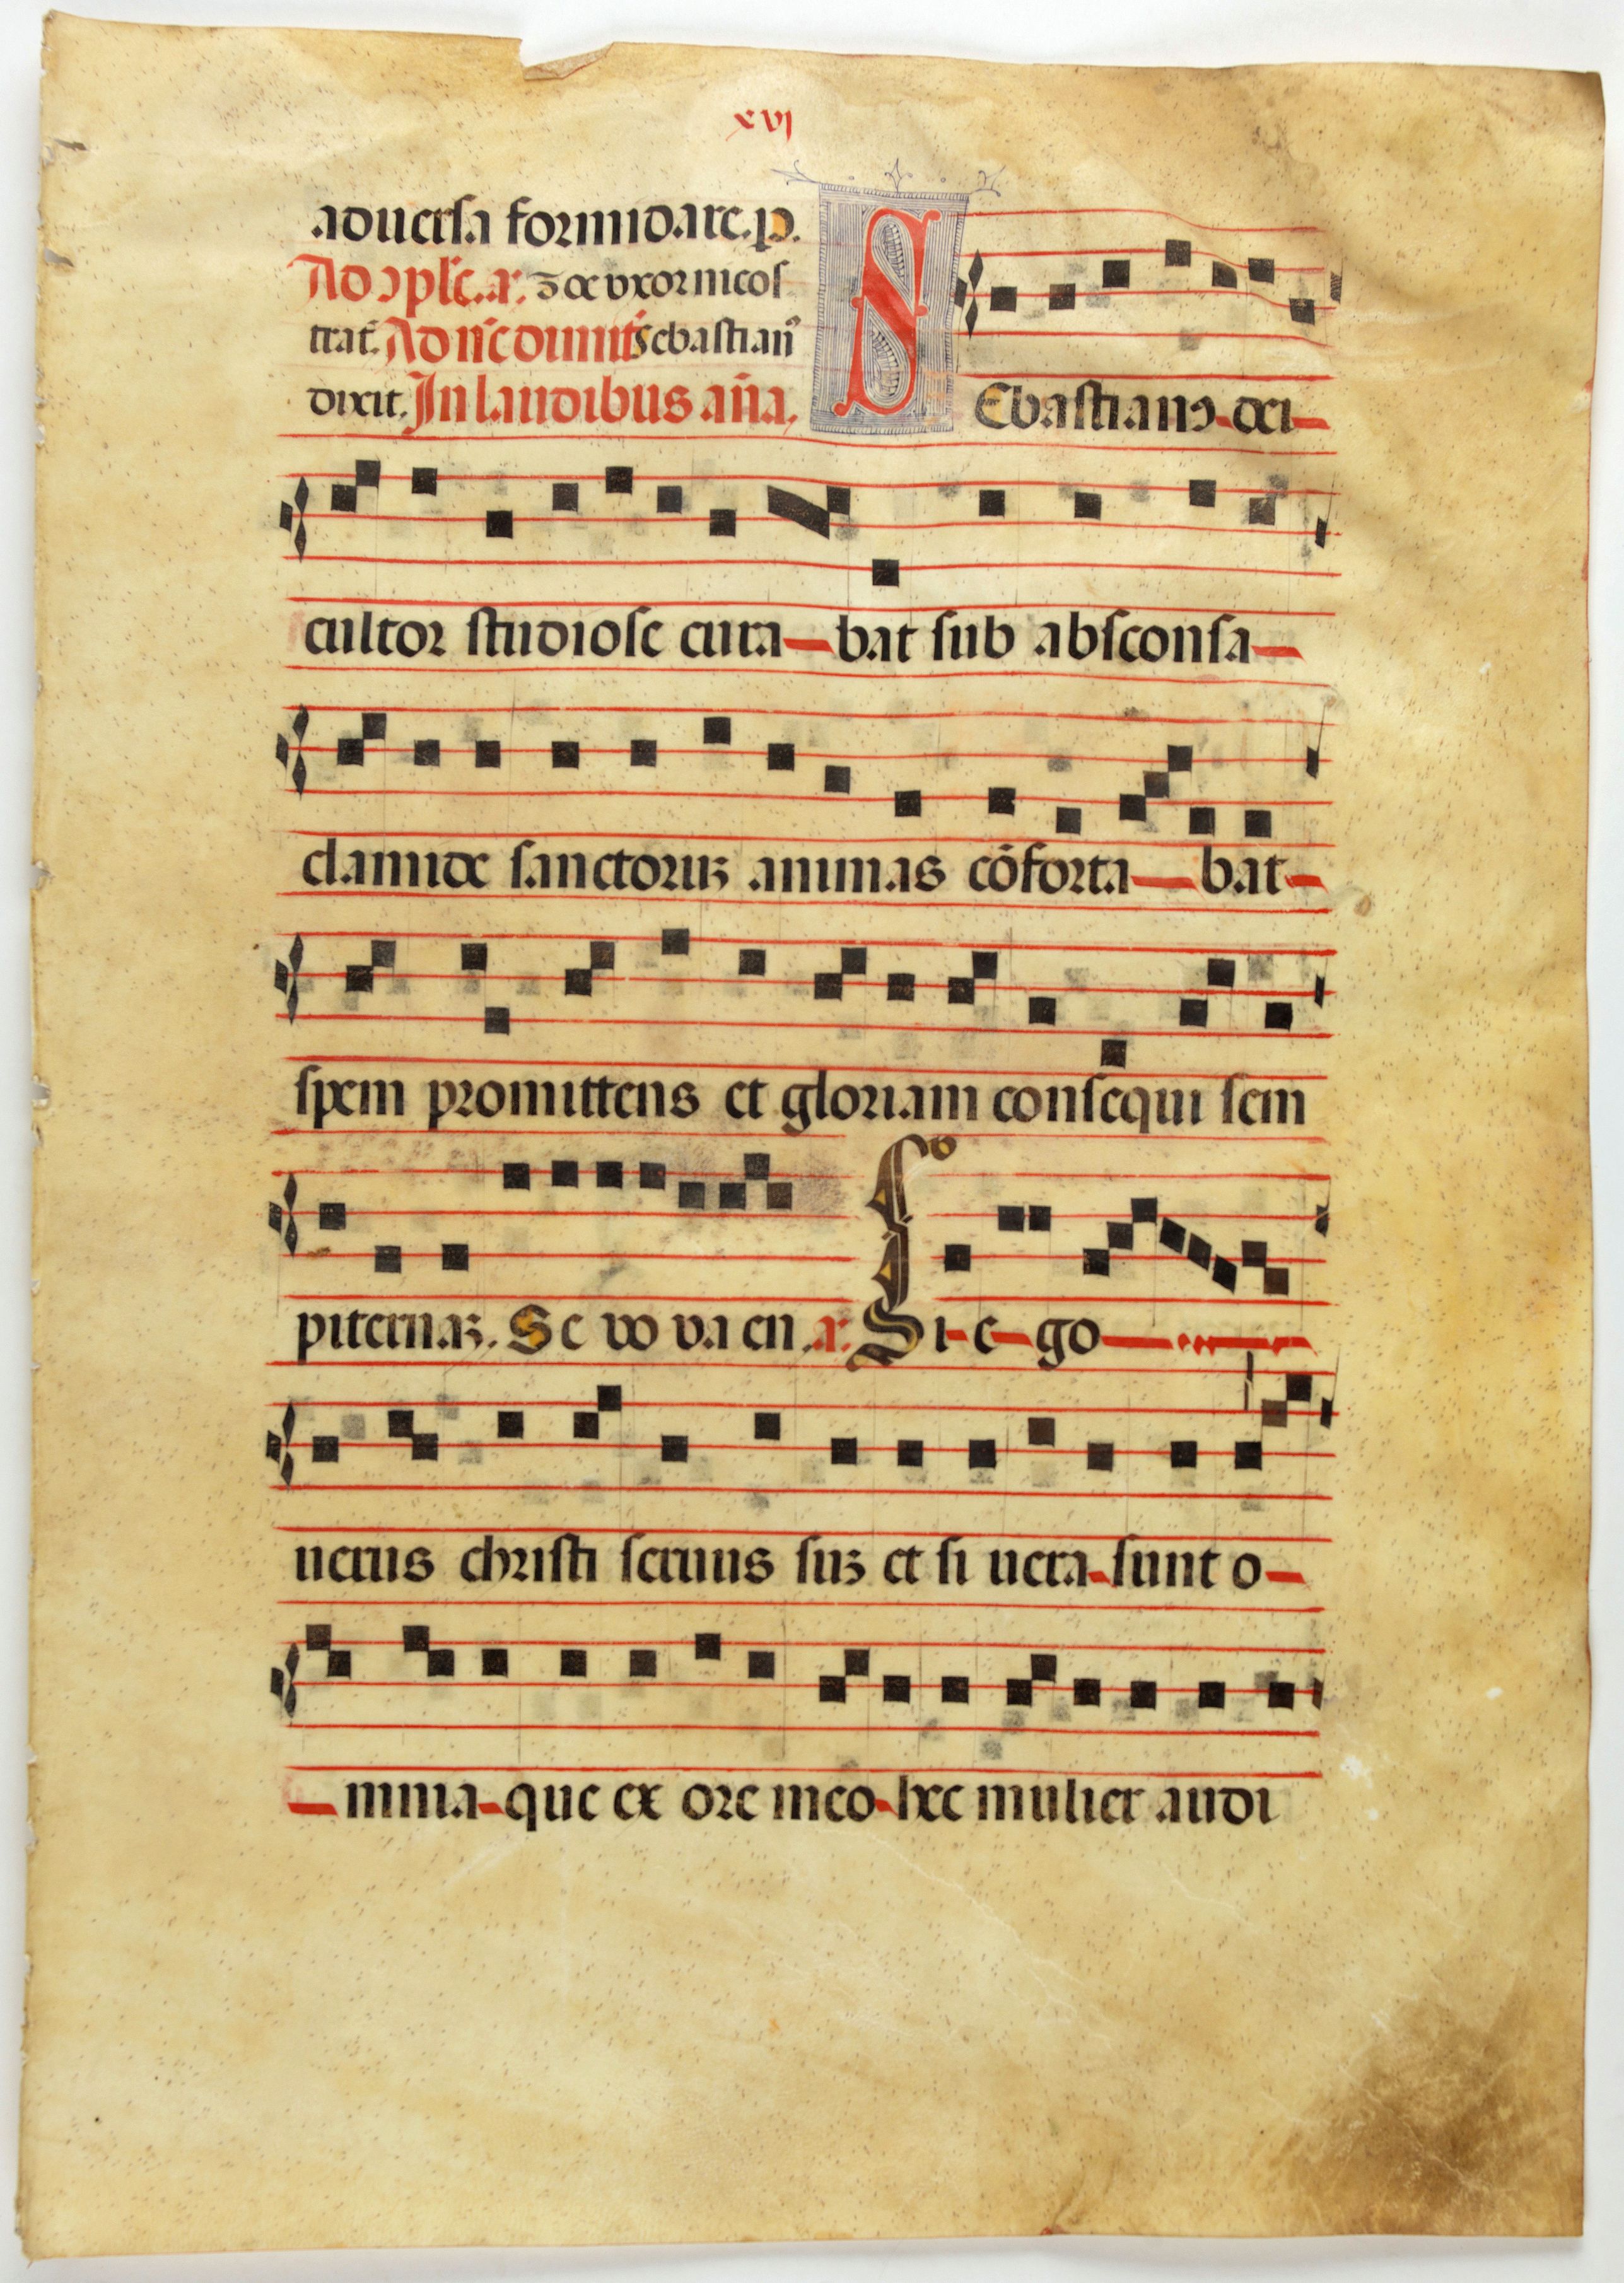 xvj
aduersa formidare. p̱.
Ad ɔplć. a. zoe vxor nicos
trat̄. Ad nc̄ dimit̄s Sebastianꝰ
dixit. In laudibus an̄a.
SEbastianꝰ dei
cultor studiose cura bat sub absconsa
clamide sanctoruʒ animas cōforta bat
spem promittens et gloriam consequi sem
piternaʒ. Se vo va en .a. Si e go
uerus christi seruus suʒ et si uera sunt o
mnia que ex ore meo hec mulier audi